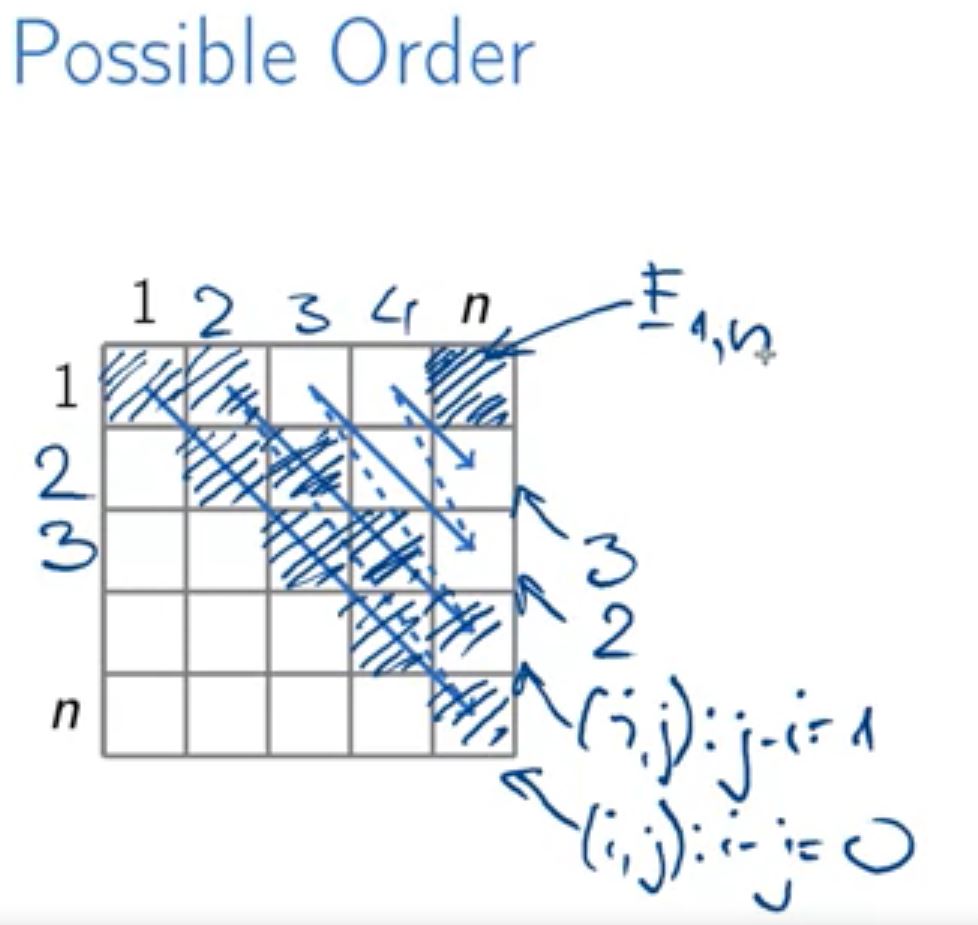 Possible Order
1 2 3 4 n
E1,n
1
2
3
n
3
2
(i,j): j-i=1
(i,j): i-j=0